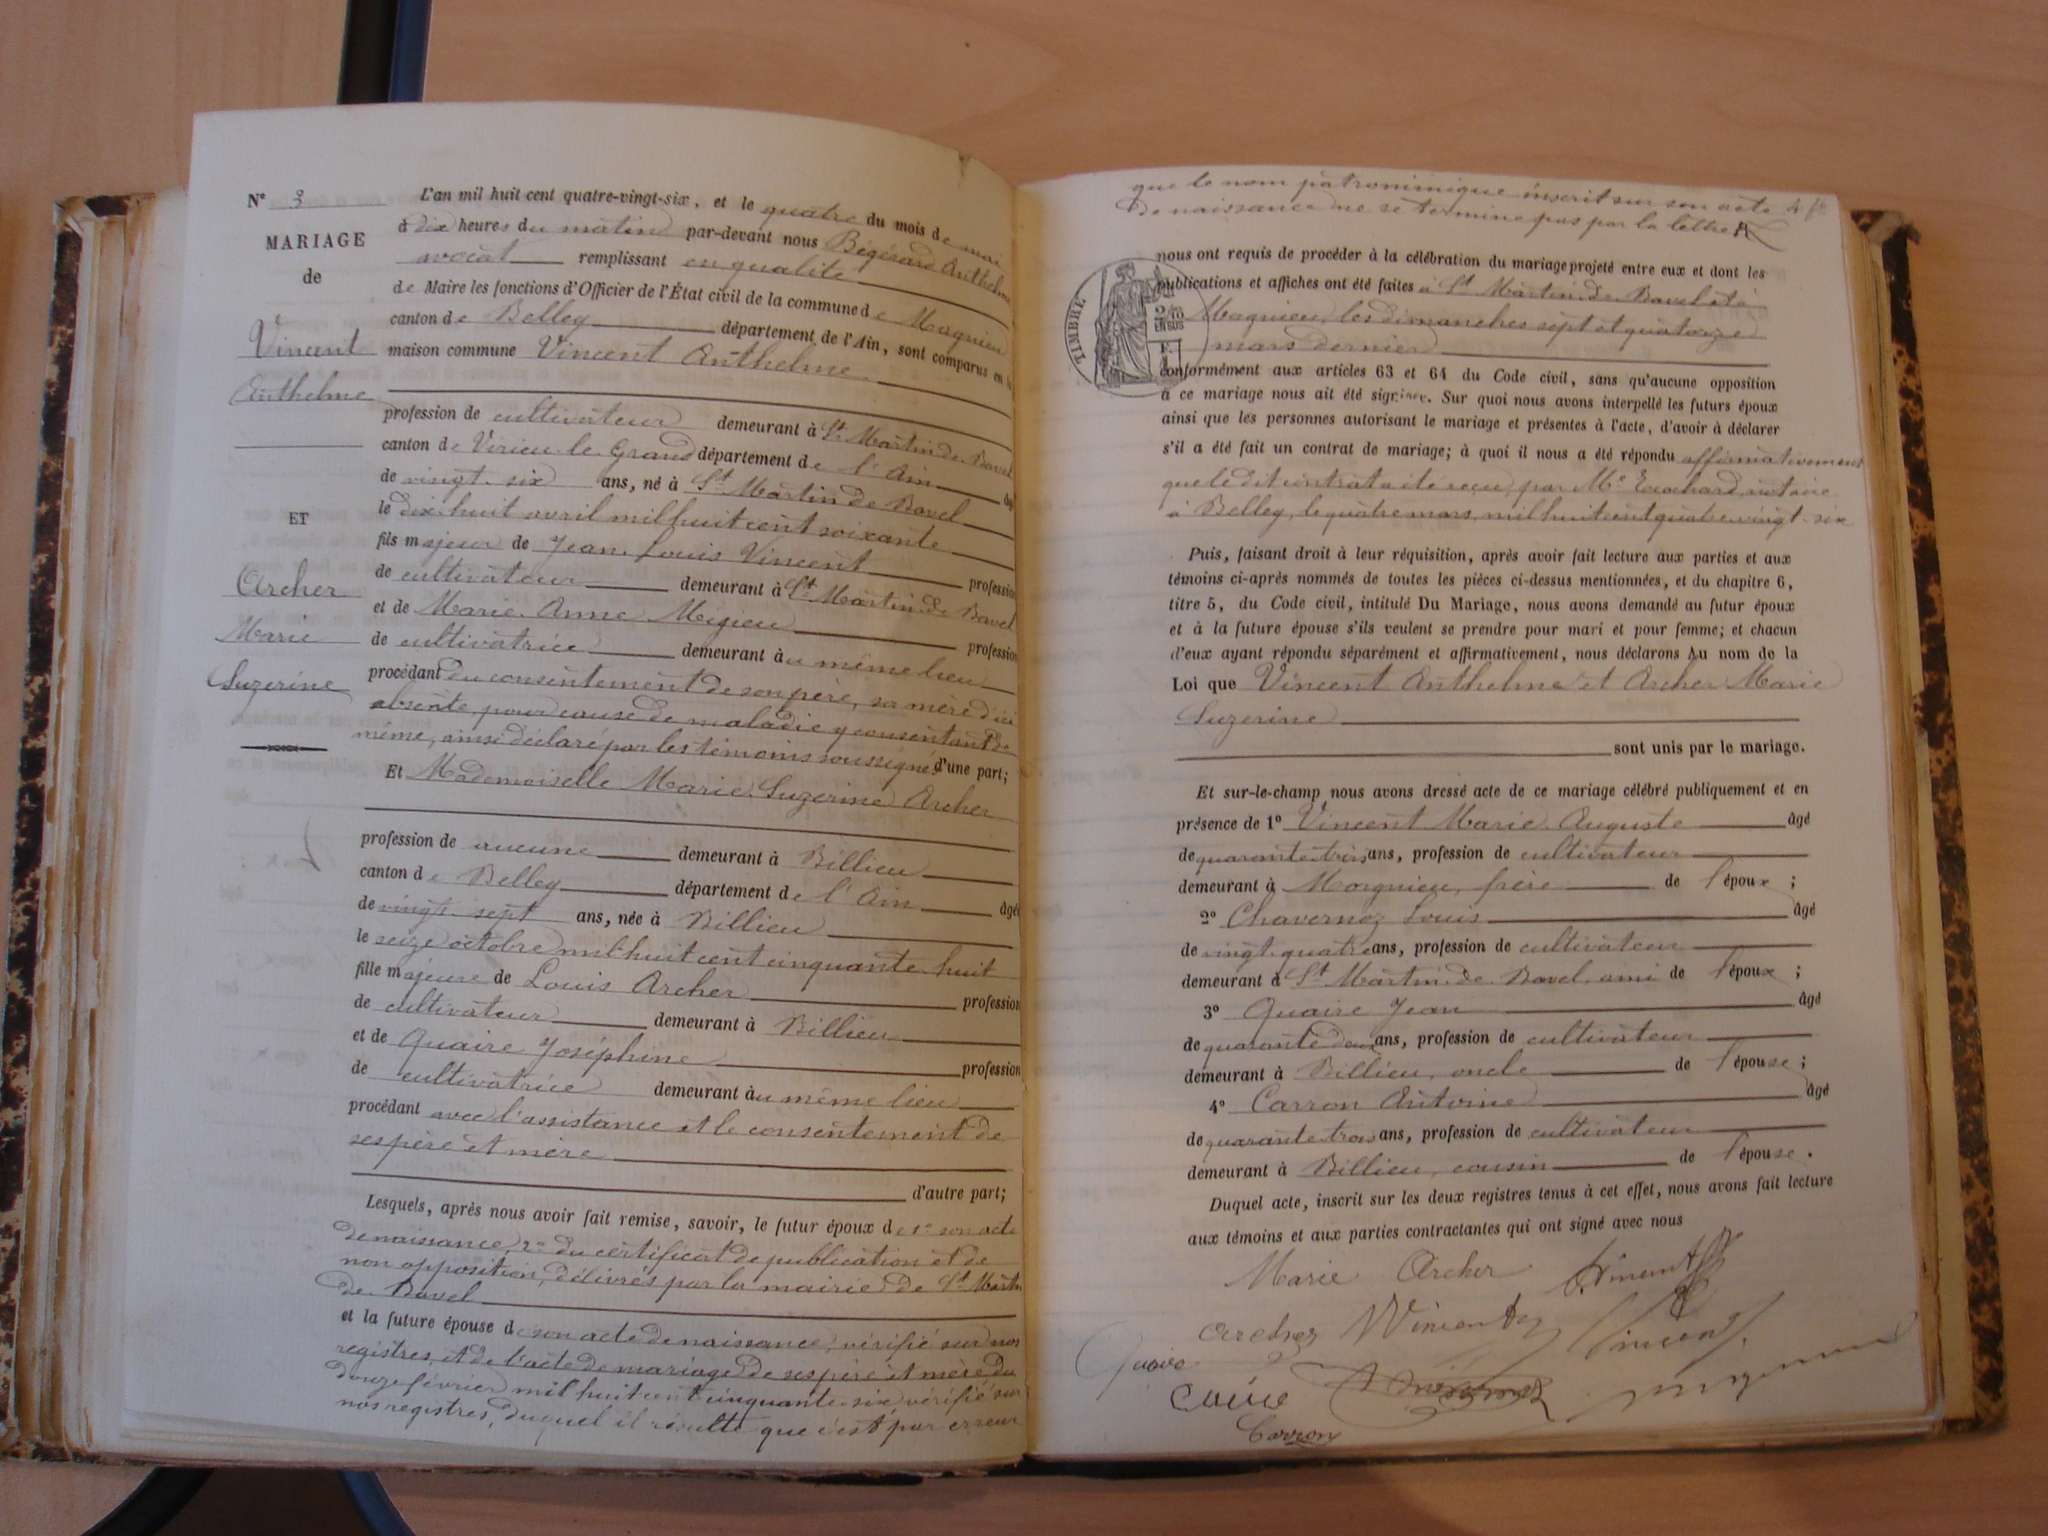 N° 3
MARIAGE
de
Vincent
Anthelme
ET
Archer
Marie
Suzerine
L'an mil huit cent quatre-vingt-six, et le quatre du mois de mai
à dix heures du matin par-devant nous Bégérard Anthelme
avocat remplissant en qualité
de Maire les fonctions d'Officier de l'État civil de la commune de Magnieu
canton de Belley département de l'Ain, sont comparus en la
maison commune Vincent Anthelme
profession de cultivateur demeurant à St Martin de Bavel
canton de Virieu le Grand département de l'Ain âgé
de vingt-six ans, né à St Martin de Bavel
le dix-huit avril mil huit cent soixante
fils majeur de Jean Louis Vincent profession
de cultivateur demeurant à St Martin de Bavel
et de Marie Anne Mégieu profession
de cultivatrice demeurant au même lieu
procédant du consentement de son père, sa mère d'ici
absente pour cause de maladie y consentant de
même, ainsi déclaré par les témoins soussignés d'une part;
Et Mademoiselle Marie Suzerine Archer
profession de aucune demeurant à Billieu
canton de Belley département de l'Ain âgée
de vingt-sept ans, née à Billieu
le seize octobre mil huit cent cinquante huit
fille majeure de Louis Archer profession
de cultivateur demeurant à Billieu
et de Quaire Joséphine profession
de cultivatrice demeurant au même lieu
procédant avec l'assistance et le consentement de
ses père et mère
d'autre part;
Lesquels, après nous avoir fait remise, savoir, le futur époux de 1° son acte
de naissance, 2° du certificat de publication et de
non opposition, délivrés par la mairie de St Martin
de Bavel
et la future épouse de son acte de naissance, vérifié sur nos
registres, et de l'acte de mariage de ses père et mère du
douze février mil huit cent cinquante-six vérifié sur
nos registres, duquel il résulte que c'est par erreur
que le nom patronimique inscrit sur son acte
de naissance ne se termine pas par la lettre R
nous ont requis de procéder à la célébration du mariage projeté entre eux et dont les
publications et affiches ont été faites à St Martin de Bavel et à
Magnieu, les dimanches sept et quatorze
mars dernier
TIMBRE
2/10
EN SUS
conformément aux articles 63 et 64 du Code civil, sans qu'aucune opposition
à ce mariage nous ait été signifiée. Sur quoi nous avons interpellé les futurs époux
ainsi que les personnes autorisant le mariage et présentes à l'acte, d'avoir à déclarer
s'il a été fait un contrat de mariage; à quoi il nous a été répondu affirmativement
que le dit contrat a été reçu par Me notaire
à Belley, le quatre mars mil huit cent quatre-vingt-six
Puis, faisant droit à leur réquisition, après avoir fait lecture aux parties et aux
témoins ci-après nommés de toutes les pièces ci-dessus mentionnées, et du chapitre 6,
titre 5, du Code civil, intitulé Du Mariage, nous avons demandé au futur époux
et à la future épouse s'ils veulent se prendre pour mari et pour femme; et chacun
d'eux ayant répondu séparément et affirmativement, nous déclarons Au nom de la
Loi que Vincent Anthelme et Archer Marie
Suzerine
sont unis par le mariage.
Et sur-le-champ nous avons dressé acte de ce mariage célébré publiquement et en
présence de 1° Vincent Marie Auguste âgé
de quarante-trois ans, profession de cultivateur
demeurant à Magnieu, frère de l'époux;
2° Chavernoz Louis âgé
de vingt-quatre ans, profession de cultivateur
demeurant à St Martin de Bavel, ami de l'époux;
3° Quaire Jean âgé
de quarante deux ans, profession de cultivateur
demeurant à Billieu, oncle de l'épouse;
4° Carron Antoine âgé
de quarante-trois ans, profession de cultivateur
demeurant à Billieu, cousin de l'épouse.
Duquel acte, inscrit sur les deux registres tenus à cet effet, nous avons fait lecture
aux témoins et aux parties contractantes qui ont signé avec nous
Marie Archer Vincent
Archer Vincent Vincent
Quaire
Carron